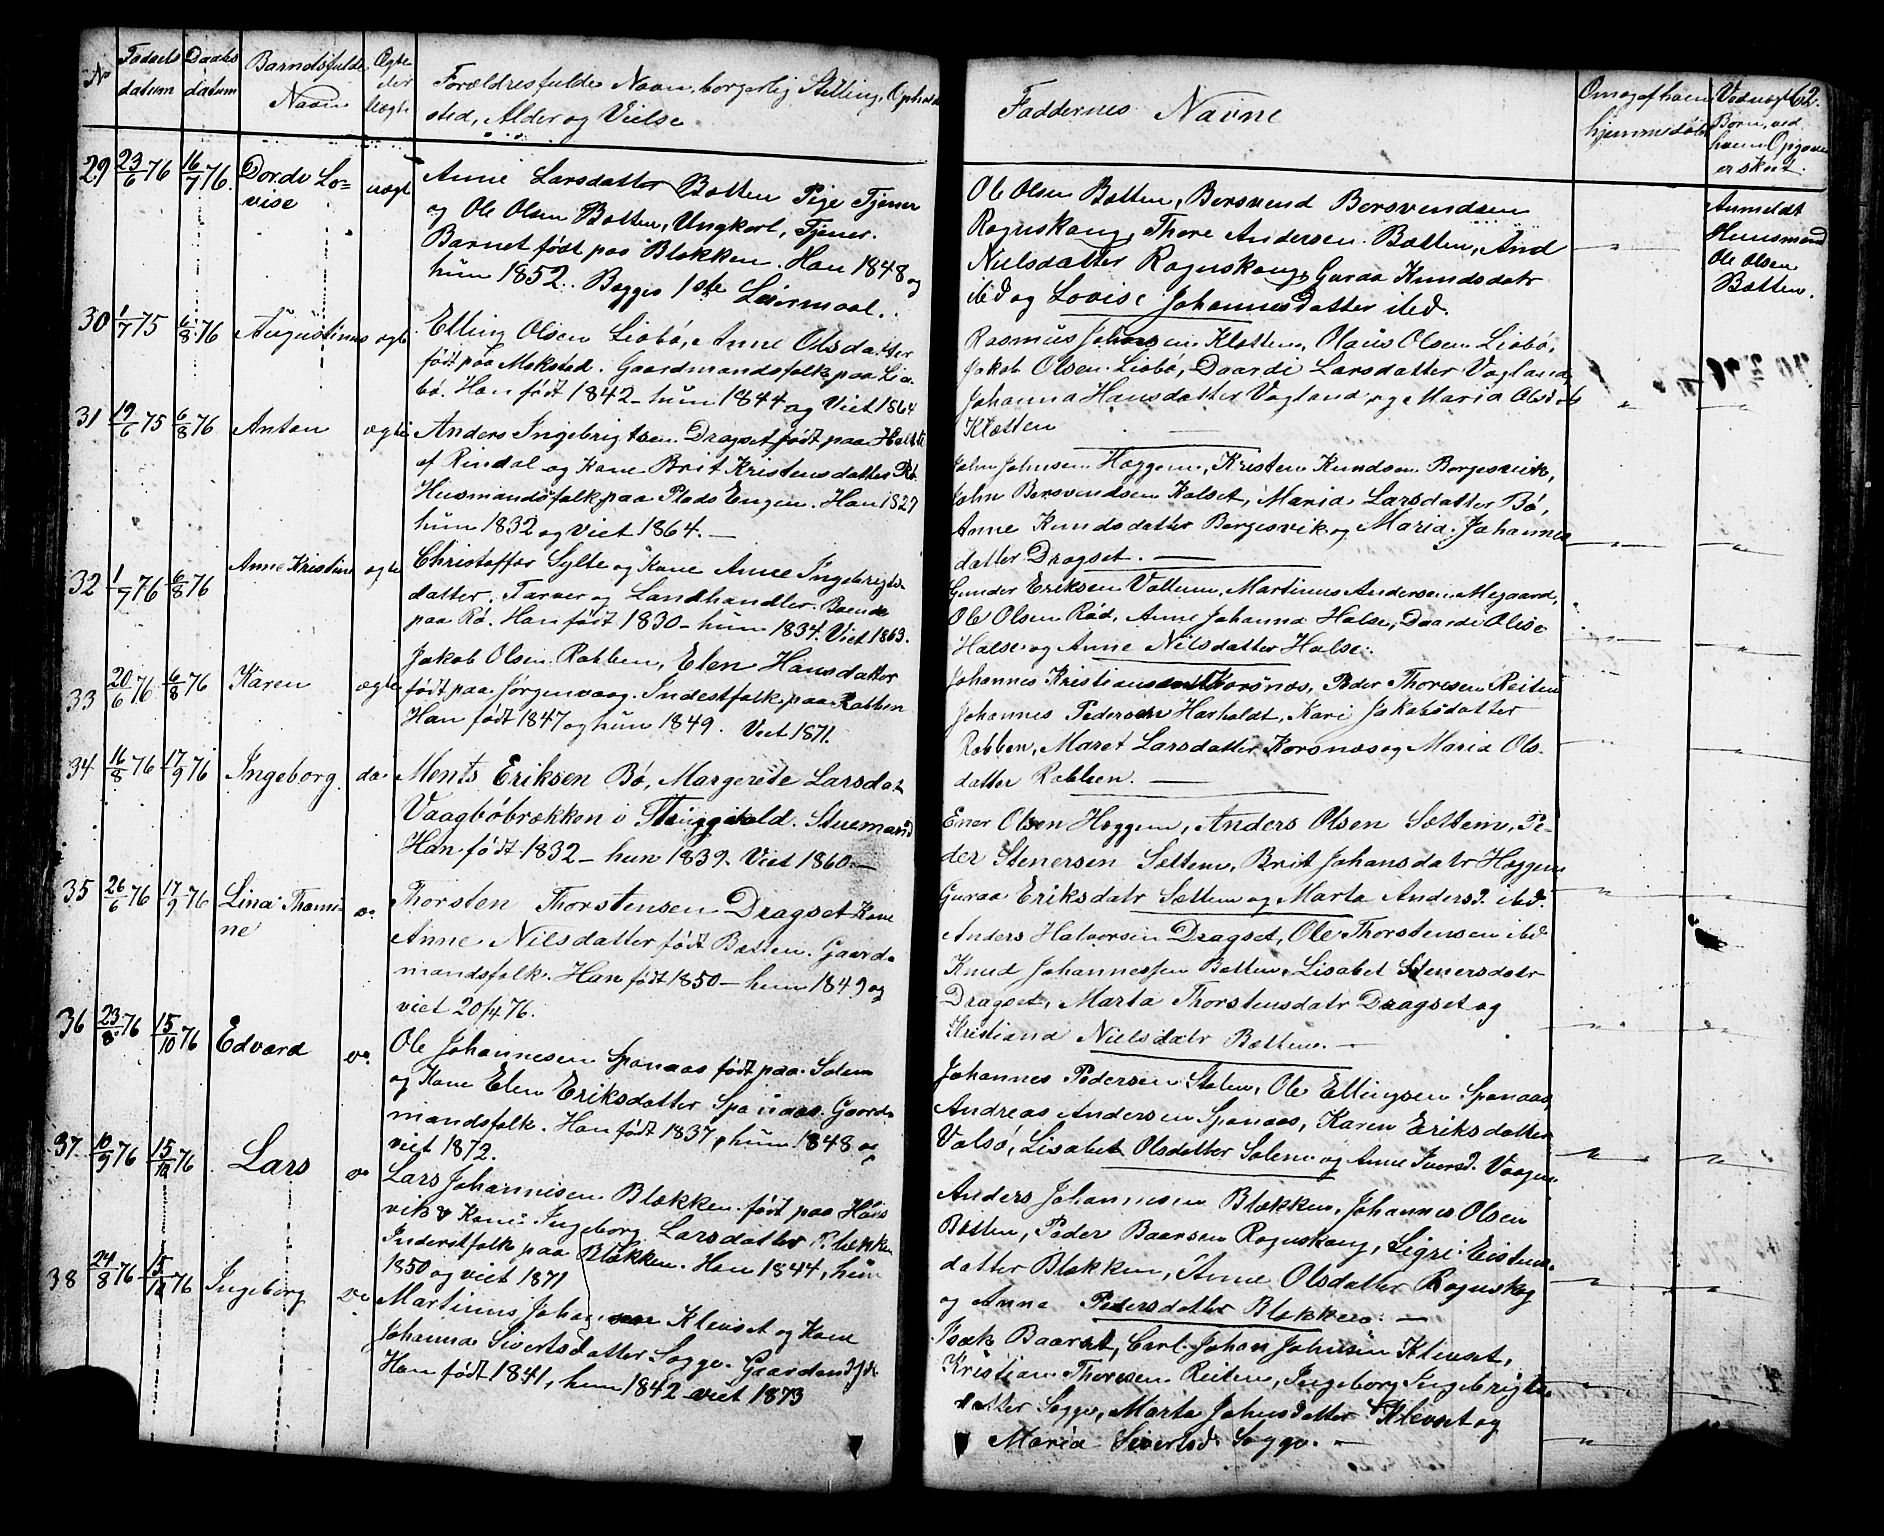 No
Fødsels
datum
Daabs
datum
Barnets fulde
Navn
Ægte
eller
Uægte
Forældres fulde Navn, borgerlig Stilling, Opholds
sted, Alder og Vielse
29 23/6 76 16/7 76. Dorde Lo=
vise
uægte
Anne Larsdatter Bøtten Pige Tjener
og Ole Olsen Bøtten, Ungkarl, Tjener.
Barnet født paa Blekken. Han 1848 og
hun 1852. Begges 1ste Leiermaal.
30 1/7 75 6/8 76 Augustinus ægte
Elling Olsen Liabø, Anne Olsdatter
født paa Meksted. Gaardmandsfolk paa Lia-
bø. Han født 1842 - hun 1844 og Viet 1864
31 19/6 75 6/8 76 Anton ægte
Anders Ingebrigtsen Dragset født paa
af Rindal og Kone Brit Kristensdatter
Husmandsfolk paa Plads Engen. Han 1827
hun 1832 og Viet 1864. -
32 1/7 76 6/8 76 Anne Kristine ægte
Christoffer Sylte og Kone Anne Ingebrigts
datter. Farver og Landhandler. Boende
paa Rø. Han født 1830 - hun 1834. Viet 1863.
33 20/6 76 6/8 76 Karen ægte
Jakob Olsen Rabben, Elen Hansdatter
født paa Jørgenvaag. Inderstfolk paa Rabben
Han født 1847 og hun 1849. Viet 1871.
34 16/8 76 17/9 76 Ingeborg do
Ments Eriksen Bø, Margerete Larsdat
Vaagbøbrækken i Stuemand
Han født 1832 - hun 1839. Viet 1860. -
35 26/6 76 17/9 76 Lina Thomi-
ne
Thorsten Thorstensen Dragset Kone
Anne Nilsdatter født Bøtten. Gaard-
mandsfolk. Han født 1850 - hun 1849 og
viet 20/4 76.
36 23/8 76 15/10 76 Edvard
Ole Johannesen Spanaas født paa Solem
og Kone Elen Eriksdatter Spanaas. Gaard-
mandsfolk. Han født 1837, hun 1848 og
viet 1872.
37 10/9 76 15/10 76 Lars
Lars Johannesen Blekken født paa Høis
vik & Kone Ingeborg Larsdatter Blekken
Inderstfolk paa Blekken. Han 1844, hun
1850 og viet 1871
38 24/8 76 15/10 76 Ingeborg
Martinus Klevset og Kone
Johanna Sivertsdatter Sogge. Gaardmdfolk
Han født 1841, hun 1842 viet 1873
Faddernes Navne
Om og af hvem
hjemmedøbt
62.
Ved uægte
Børn, ved
hvem Opgaven
er skeet.
Ole Olsen Bøtten, Bersvend Bersvendsen
Rognskaug, Thore Andersen Bøtten, And
Nielsdatter Rognskaug, Guraa Knudsdatr
ibd og Lovise Johannesdatter ibd.
Anmeldt
Huusmand
Ole Olsen
Bøtten.
Rasmus Johansen Kletten, Olaus Olsen Liabø,
Jakob Olsen Liabø, Daardi Larsdatter Vagland,
Johanna Hansdatter Vagland og Maria Olsdatr
Kletten
John Johnsen Høggem, Kristen Knudsen Borgesvik,
John Bersvendsen Kalset, Maria Larsdatter Bø,
Anne Knudsdatter Borgesvik og Maria Johannes
datter Dragset. -
Gunder Eriksen Vullum, Martinus Andersen Megaard,
Ole Olsen Rød, Anne Johanna Halse, Daardi Olise
Halse og Anne Nilsdatter Halse.
Johannes Kristiansen Korsnæs, Peder Thoresen Reiten
Johannes Pedersen Harholdt, Kari Jakobsdatter
Rabben, Maret Larsdatter Korsnæs og Maria Ols-
datter Rabben. -
Ener Olsen Høggem, Anders Olsen Settem, Pe-
der Stenersen Settem, Brit Johansdatr Høggem
Guraa Eriksdatr Settem og Marta Andersd. ibd.
Anders Halvorsen Dragset, Ole Thorstensen ibd
Knud Johannessen Bøtten, Lisabet Stenersdatr
Dragset, Marta Thorstensdatr Dragset og
Kristiana Nielsdatr Bøtten. -
Johannes Pedersen Stolen, Ole Ellingsen Spanaas,
Andreas Andersen Spanaas, Karen Eriksdatter
Valsø, Lisabet Olsdatter Solem og Anne Iversd. Vaagen
Anders Johannesen Blekken, Johannes Olsen
Bøtten, Peder Baarsen Rognskaug, Sigri Eistens-
datter Blekken, Anne Olsdatter Rognskog
og Anne Pedersdatter Blekken. -
Isak Baarset, Carl Johan Johnsen Klevset,
Kristian Thoresen Reiten, Ingeborg Ingebrigts
datter Sogge, Marta Johnsdatter Klevset og
Maria Sivertsd. Sogge. -